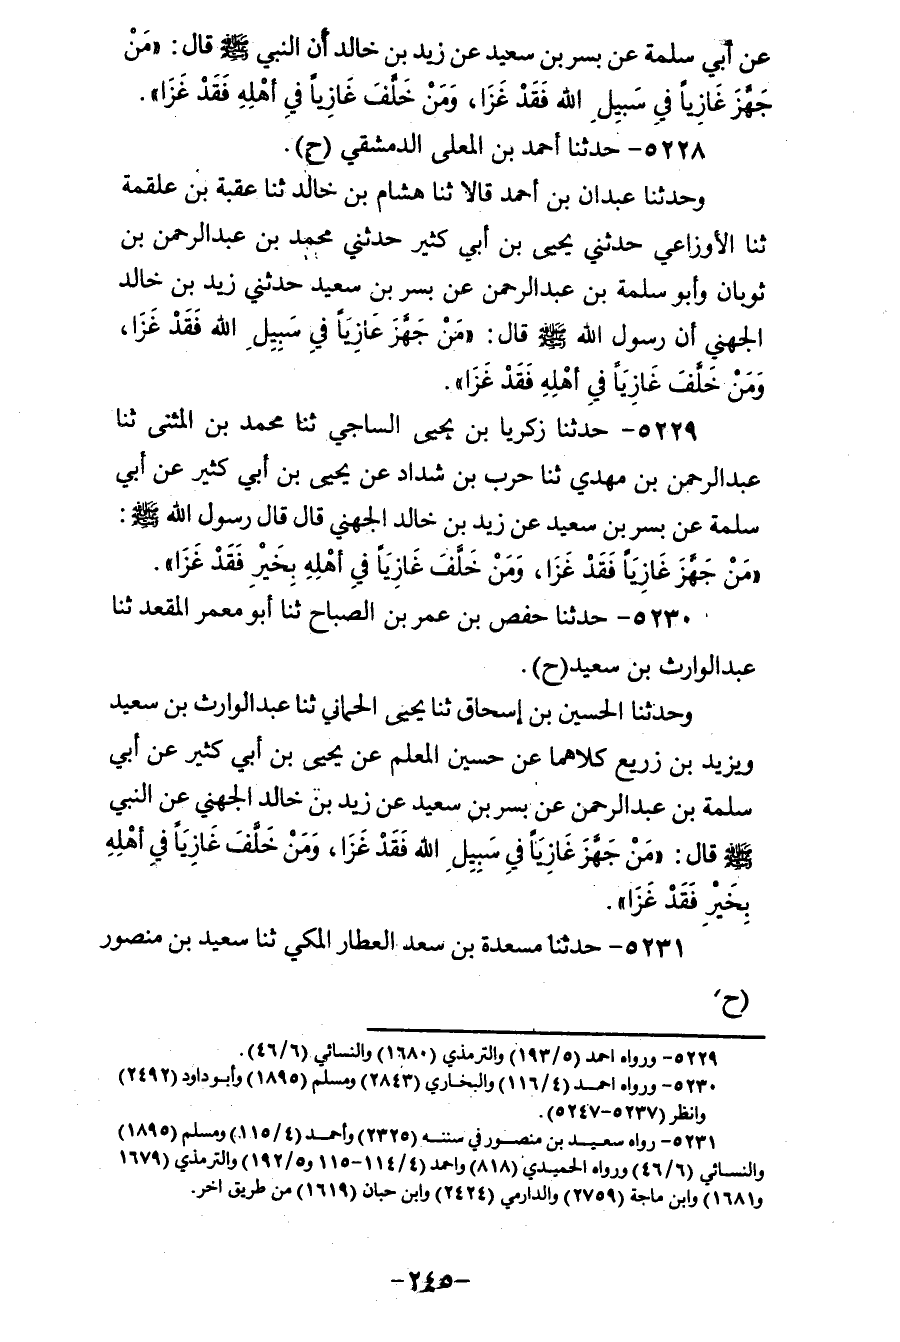 عن أبي سلمة عن بسر بن سعيد عن زيد بن خالد أن النبي ﷺ قال: «مَنْ
جَهَّزَ غَازِياً في سَبِيلِ الله فَقَدْ غَزَا، وَمَنْ خَلَّفَ غَازِياً في أهْلِهِ فَقَدْ غَزَا».
٥٢٢٨- حدثنا أحمد بن المعلى الدمشقي (ح).
وحدثنا عبدان بن أحمد قالا ثنا هشام بن خالد ثنا عقبة بن علقمة
ثنا الأوزاعي حدثني يحيى بن أبي كثير حدثني محمد بن عبدالرحمن بن
ثوبان وأبو سلمة بن عبدالرحمن عن بسر بن سعيد حدثني زيد بن خالد
الجهني أن رسول الله ﷺ قال: «مَنْ جَهَّزَ غَازِيَاً في سَبِيلِ الله فَقَدْ غَزَا،
وَمَنْ خَلَّفَ غَازِيَاً في أهْلِهِ فَقَدْ غَزَا».
٥٢٢٩- حدثنا زكريا بن يحيى الساجي ثنا محمد بن المثنى ثنا
عبدالرحمن بن مهدي ثنا حرب بن شداد عن يحيى بن أبي كثير عن أبي
سلمة عن بسر بن سعيد عن زيد بن خالد الجهني قال قال رسول الله ﷺ:
«مَنْ جَهَّزَ غَازِيَاً فَقَدْ غَزَا، وَمَنْ خَلَّفَ غَازِيَاً في أهْلِهِ بِخَيْرٍ فَقَدْ غَزَا».
٥٢٣٠- حدثنا حفص بن عمر بن الصباح ثنا أبو معمر المقعد ثنا
عبدالوارث بن سعيد(ح).
وحدثنا الحسين بن إسحاق ثنا يحيى الحماني ثنا عبدالوارث بن سعيد
ويزيد بن زريع كلاهما عن حسين المعلم عن يحيى بن أبي كثير عن أبي
سلمة بن عبدالرحمن عن بسر بن سعيد عن زيد بن خالد الجهني عن النبي
ﷺ قال: «مَنْ جَهَّزَ غَازِيَاً في سَبِيلِ الله فَقَدْ غَزَا، وَمَنْ خَلَّفَ غَازِيَاً في أهْلِهِ
بِخَيْرٍ فَقَدْ غَزَا».
٥٢٣١- حدثنا مسعدة بن سعد العطار المكي ثنا سعيد بن منصور
(ح)
٥٢٢٩- ورواه احمد (١٩٣/٥) والترمذي (١٦٨٠) والنسائي (٤٦/٦).
٥٢٣٠- ورواه احمد (١١٦/٤) والبخاري (٢٨٤٣) ومسلم (١٨٩٥) وأبو داود (٢٤٩٢)
وانظر (٥٢٣٧-٥٢٤٧).
٥٢٣١- رواه سعيد بن منصور في سننه (٢٣٢٥) وأحمد (١١٥/٤) ومسلم (١٨٩٥)
والنسائي (٤٦/٦) ورواه الحميدي (٨١٨) واحمد (١١٤/٤-١١٥ و١٩٢/٥) والترمذي (١٦٧٩
و١٦٨١) وابن ماجة (٢٧٥٩) والدارمي (٢٤٢٤) وابن حبان (١٦١٩) من طريق اخر.
-٢٤٥-